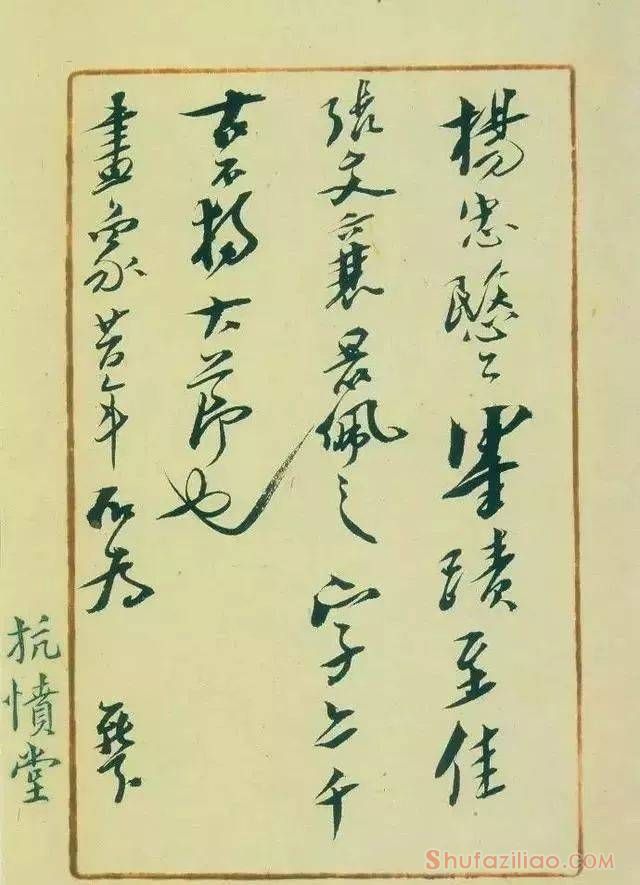 楊忠愍公蹟至佳
張文襄最佩之 字亦千
古不大節也
畫象昔年所為
抗憤堂
Shufaziliao.com